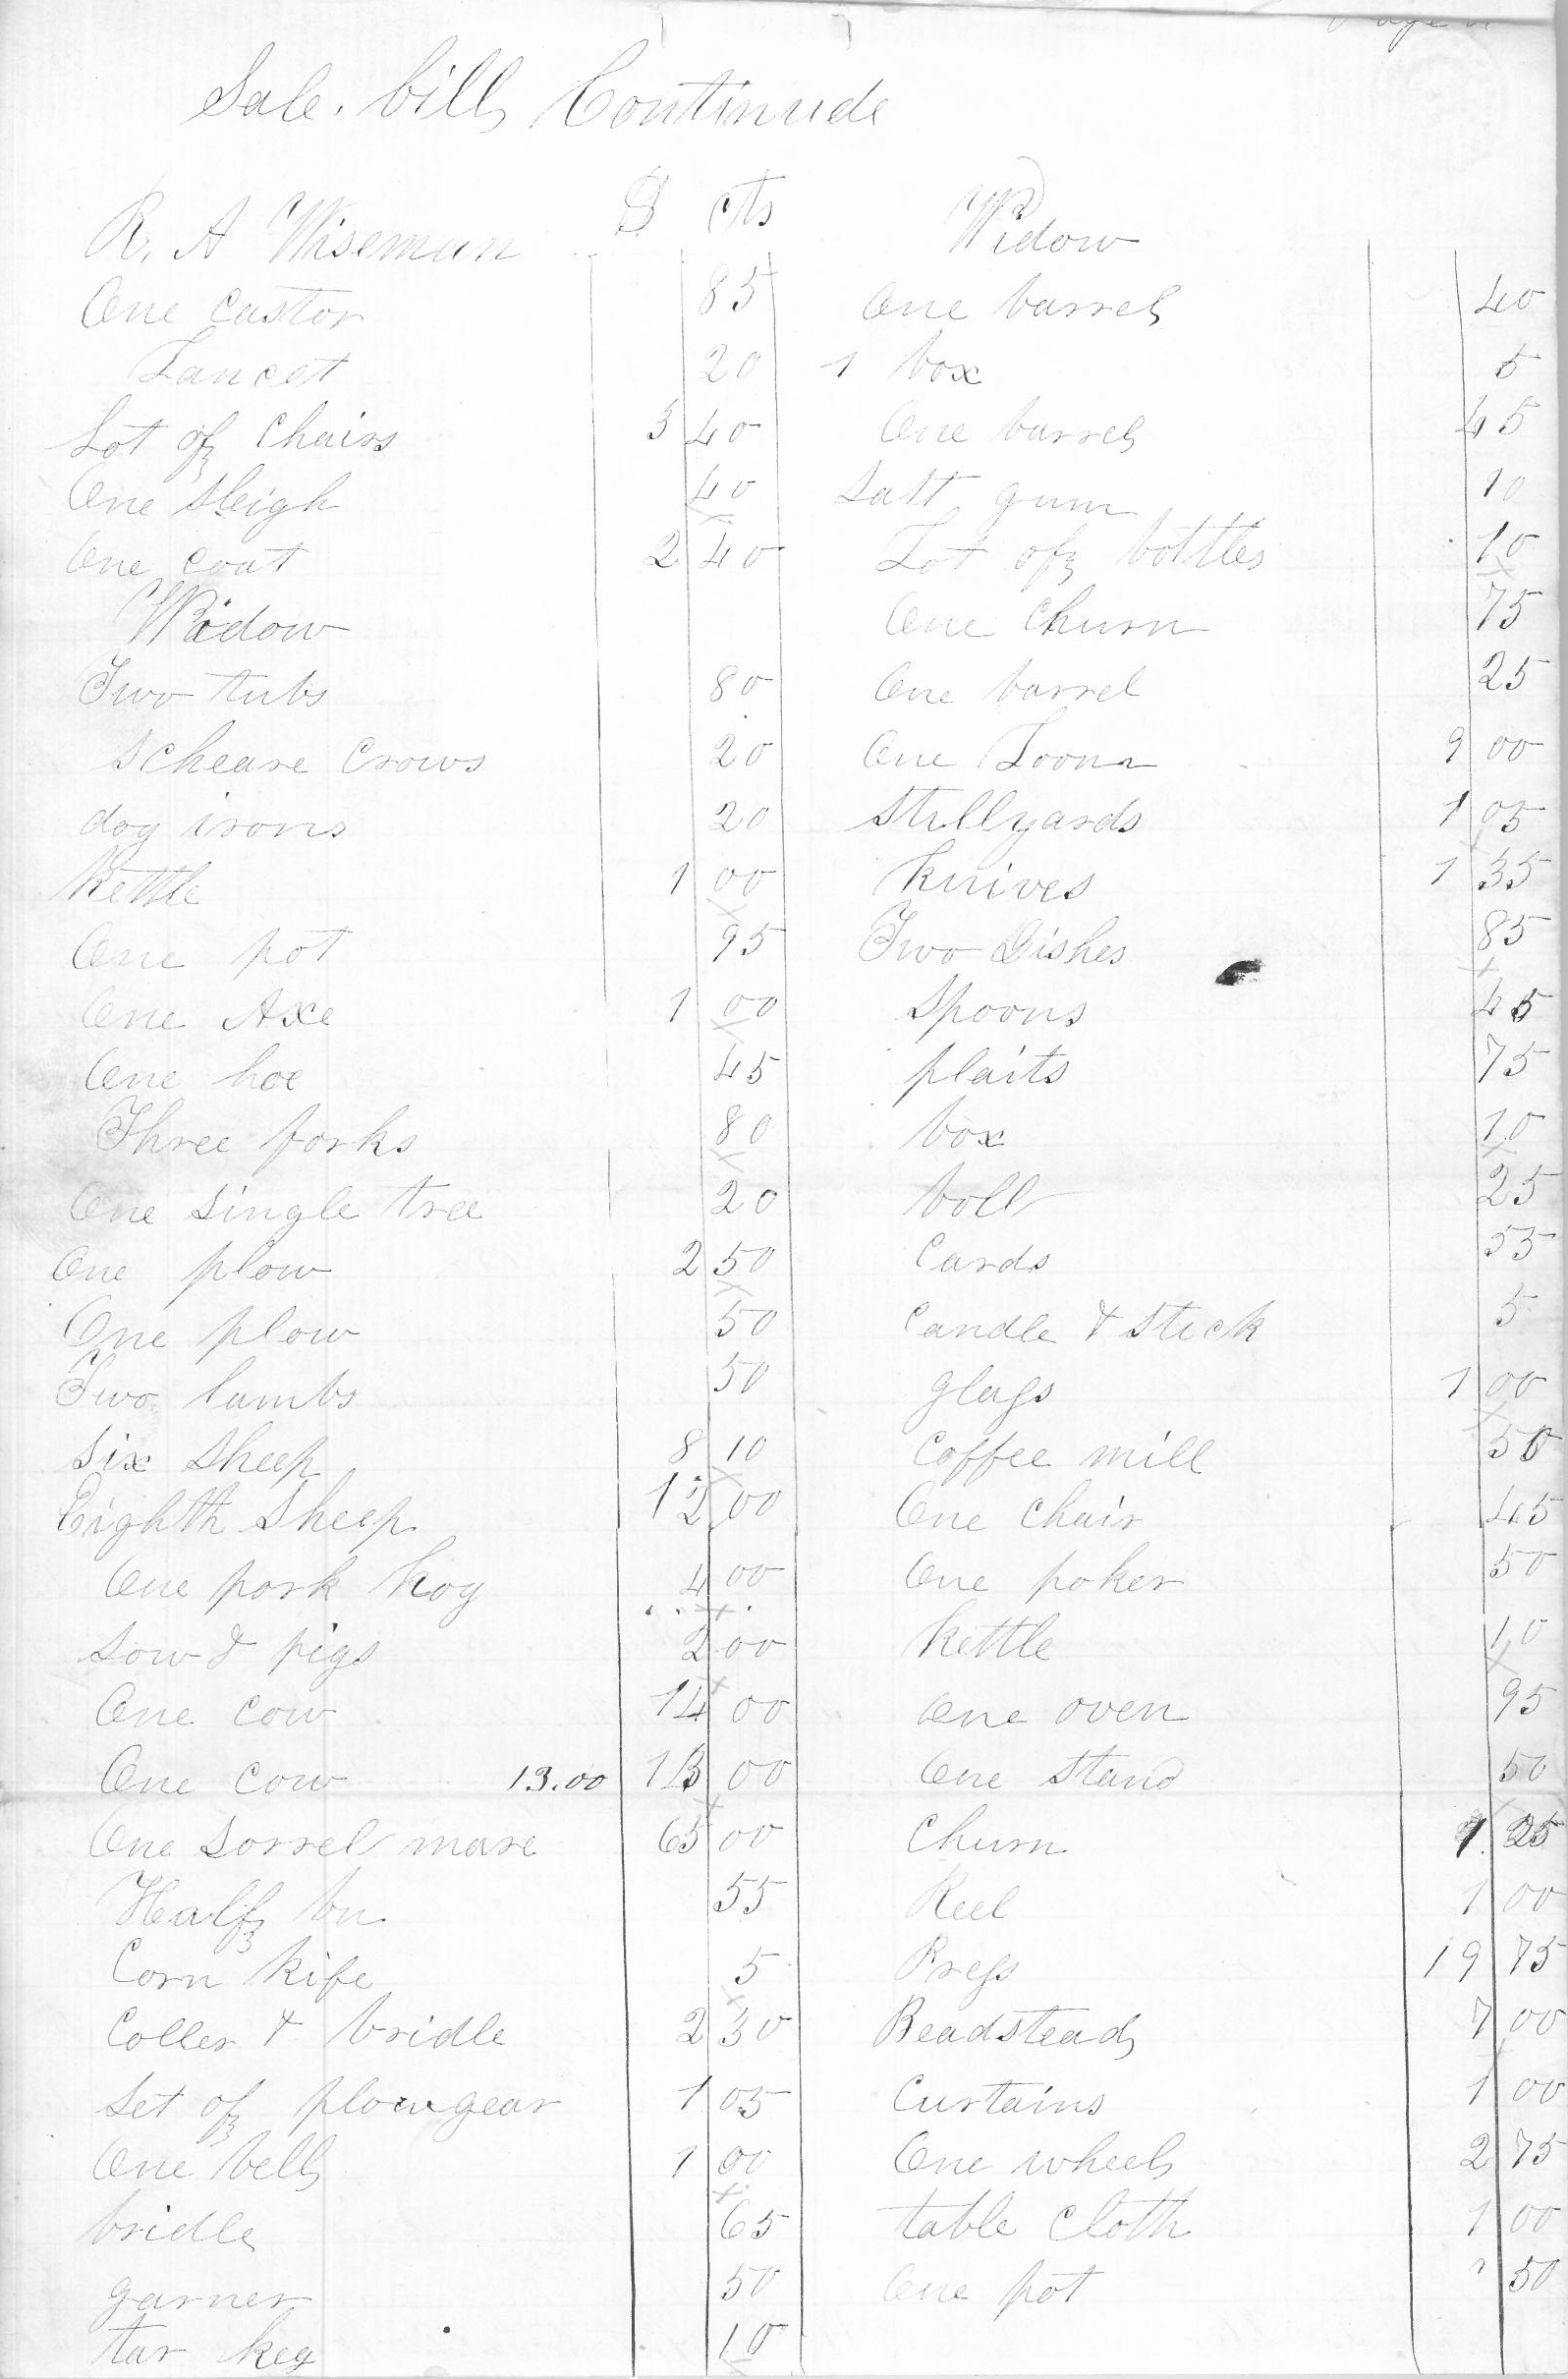 Page
Sale. bill Continude
$ cts
R. A Wiseman
One Castor 85
Lancet 20
Lot of Chairs 3 40
One Sleigh 40
One Coat 2 40
Widow
Two tubs 80
Scheare Crows 20
dog irons 20
Kettle 1 00
One pot 95
One Axe 1 00
One hoe 45
Three forks 80
One Single tree 20
One plow 2 50
One plow 50
Two lambs 50
Six Sheep 8 10
Eighth Sheep 12 00
One pork hog 4 00
Sow & pigs 2 00
One Cow 14 00
One Cow 13.00 13 00
One Sorrel mare 65 00
Half bu 55
Corn Kife 5
Coller & bridle 2 30
Set of plowgear 1 05
One bell 1 00
bridle 65
garner 50
tar keg 10
Widow
One barrel 40
1 box 5
One barrel 45
Salt gum 10
Lot of bottles 10
One Churn 75
One barrel 25
One Loom 9 00
Stillyards 1 05
Knives 1 35
Two Dishes 85
Spoons 45
plaits 75
box 10
boll 25
Cards 55
Candle & Stick 5
glass 1 00
Coffee mill 50
One Chair 45
One poker 50
Kettle 10
One oven 95
One Stand 50
Churn 1 25
Reel 1 00
Press 19 75
Beadstead 7 00
Curtains 1 00
One wheel 2 75
table Cloth 1 00
One pot 50